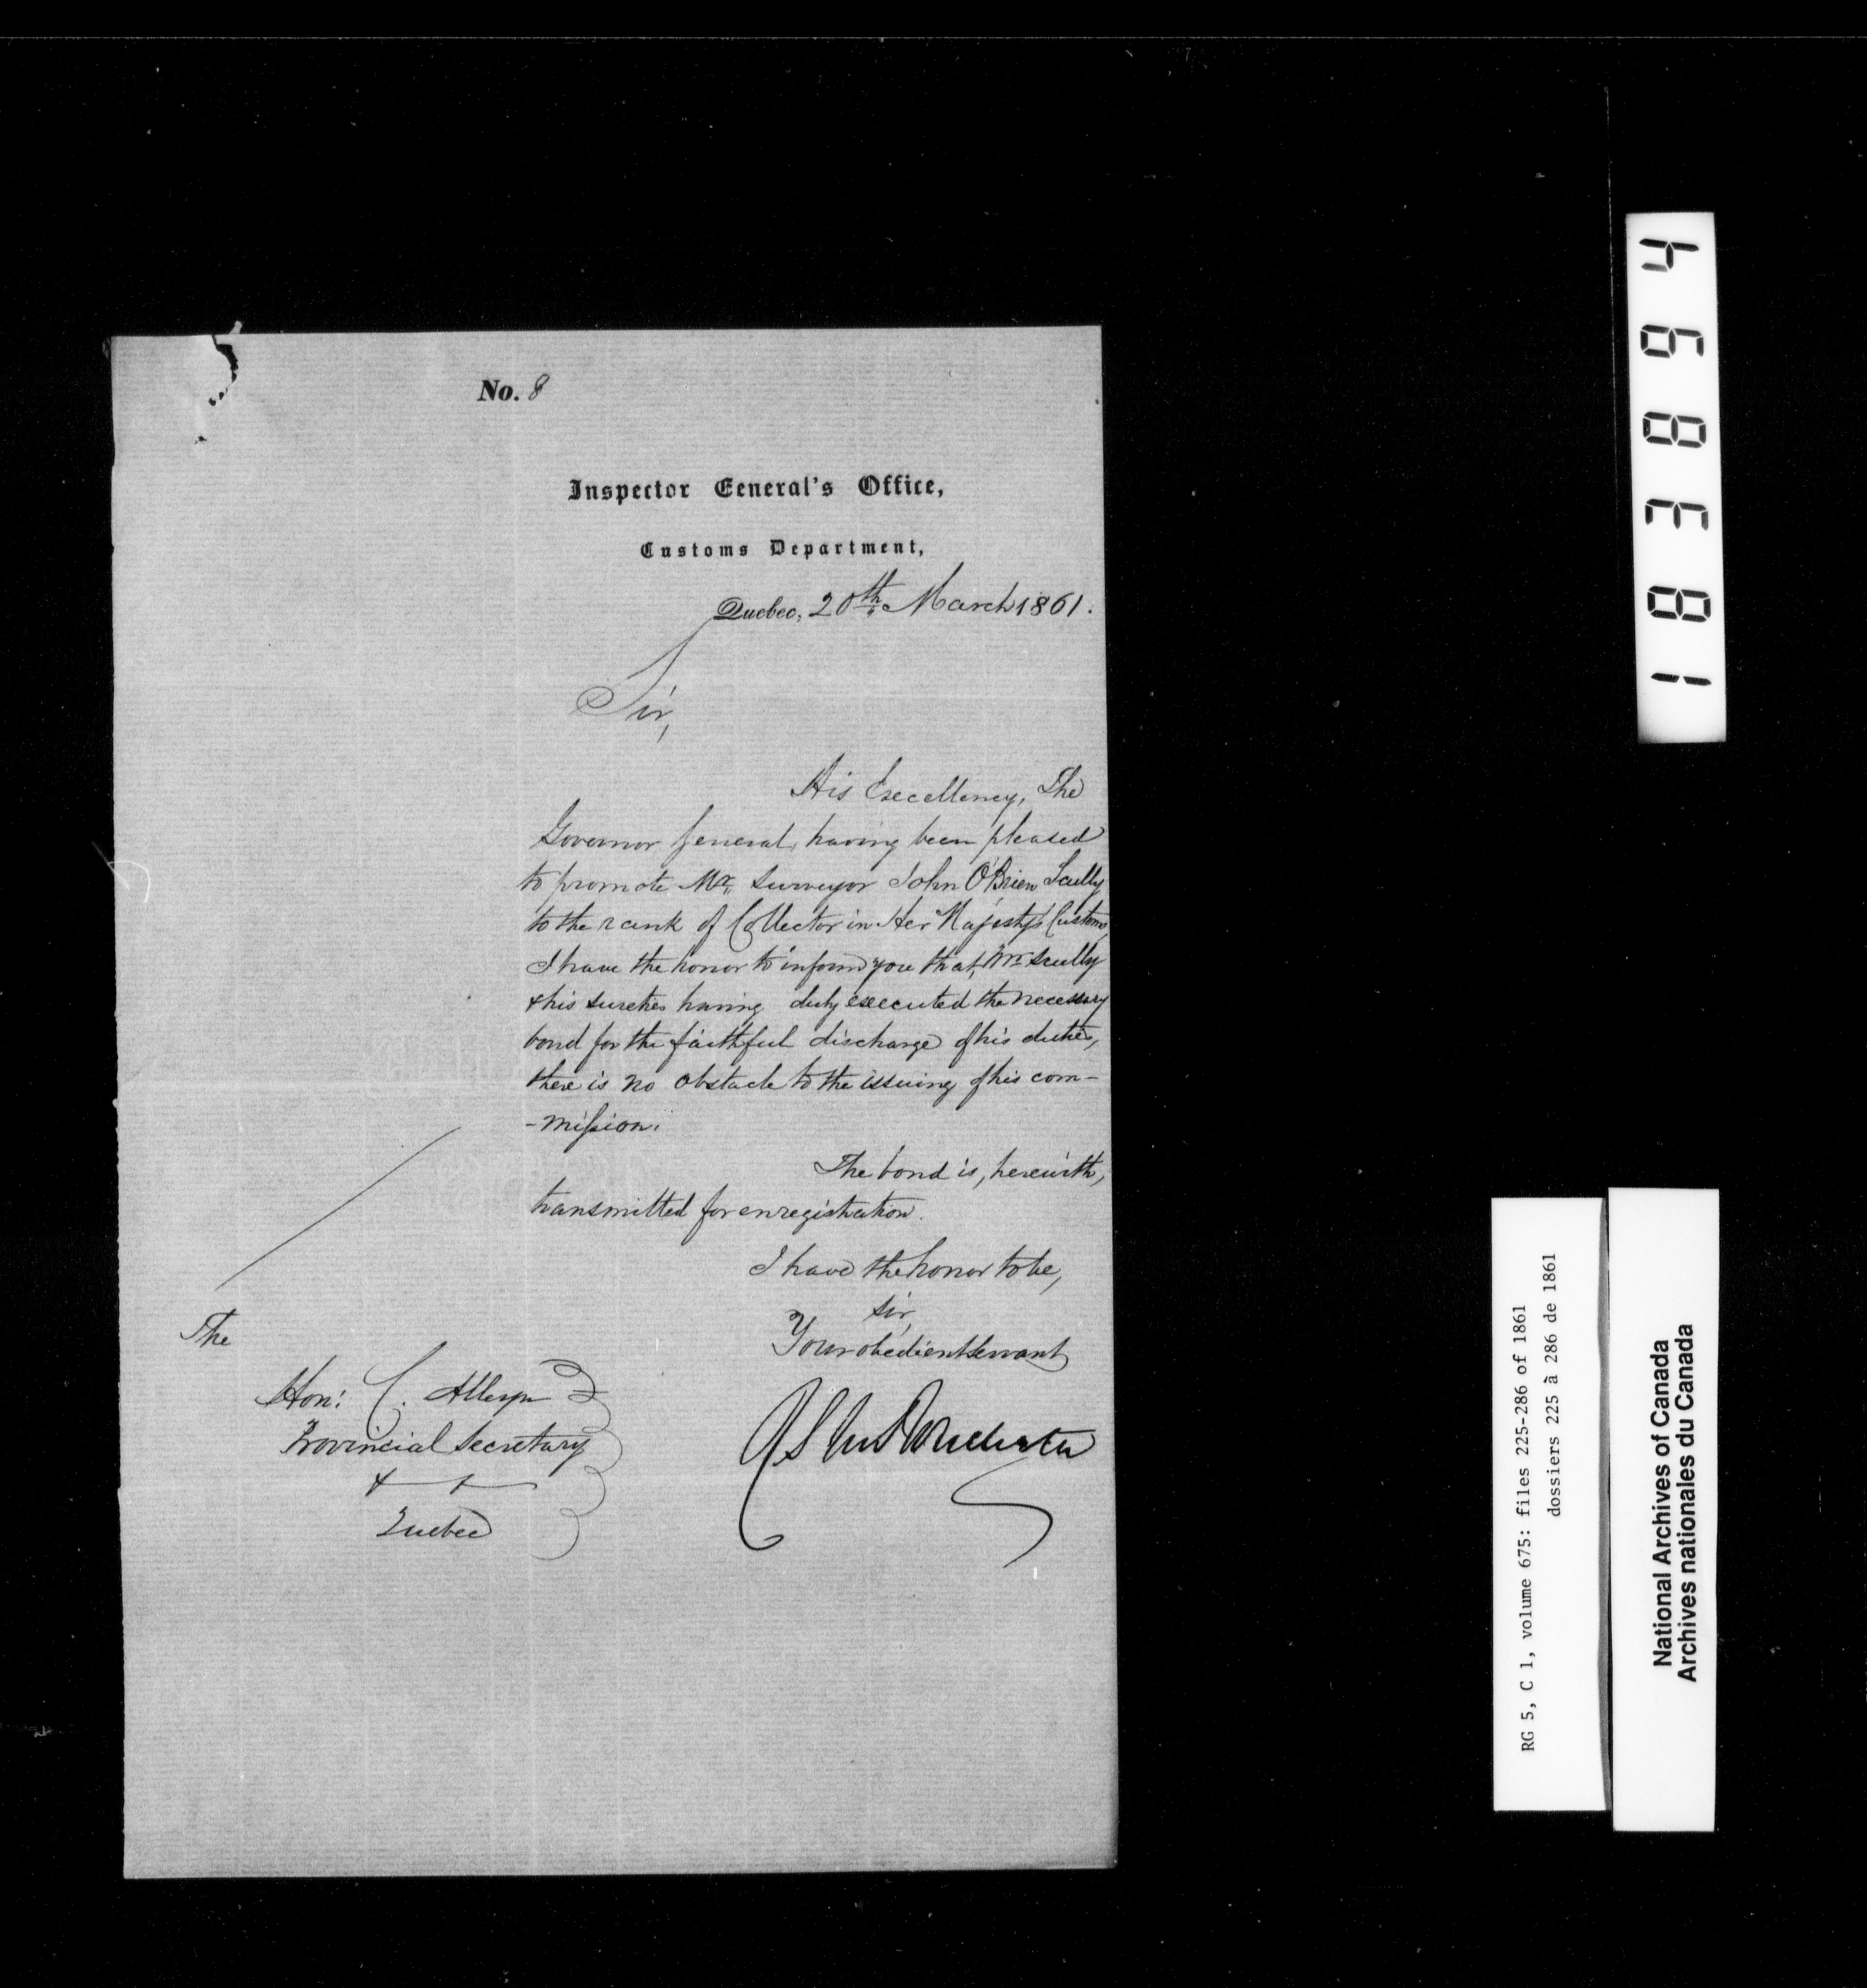 No. 8
Inspector General's Office,
Customs Department,
Quebec, 20th March 1861.
Sir,
His Excellency, The
Governor General, having been pleased
to promote Mr. Surveyor John O'Brien Scully
to the rank of Collector in Her Majesty's Customs,
I have the honor to inform you that, Mr. Scully
& his sureties having duly executed the necessary
bond for the faithful discharge of his duties,
there is no obstacle to the issuing of his com-
-mission.
The bond is, herewith,
transmitted for enregistration.
I have the honor to be,
Sir,
Your obedient Servant
The
Hon: C. Alleyn
Provincial Secretary
Quebec
183894
RG 5, C 1, volume 675: files 225-286 of 1861
dossiers 225 à 286 de 1861
National Archives of Canada
Archives nationales du Canada